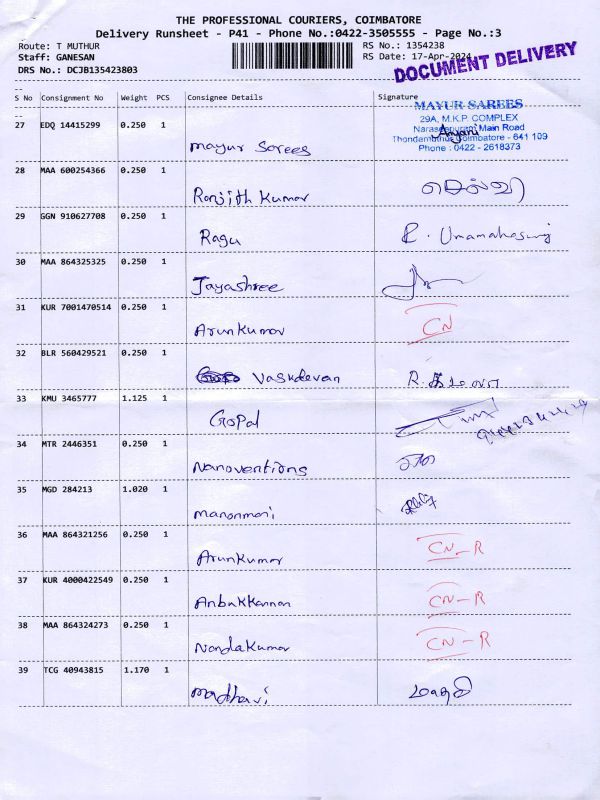 THE PROFESSIONAL COURIERS, COIMBATORE
Delivery Runsheet - P41 - Phone No.:0422-3505555 - Page No.:3
Route: T MUTHUR
RS No.: 1354238
Staff: GANESAN
RS Date: 17-Apr-2024
DRS No.: DCJB135423803
DOCUMENT DELIVERY
S No Consignment No Weight PCS Consignee Details Signature
MAYUR SAREES
29A, M.K.P. COMPLEX
Main Road
Coimbatore - 641 109
Phone : 0422 - 2618373
27 EDQ 14415299 0.250 1 Mayur Sarees
28 MAA 600254366 0.250 1 Ranjith Kumar செல்வி
29 GGN 910627708 0.250 1 Ragu R. Umamaheswari
30 MAA 864325325 0.250 1 Jayashree
31 KUR 7001470514 0.250 1 ArunKumar CN
32 BLR 560429521 0.250 1 Vasudevan R.
33 KMU 3465777 1.125 1 Gopal
34 MTR 2446351 0.250 1 Nanoventions
35 MGD 284213 1.020 1 Manonmani
36 MAA 864321256 0.250 1 ArunKumar CN-R
37 KUR 4000422549 0.250 1 Anbukkannan CN-R
38 MAA 864324273 0.250 1 NandaKumar CN-R
39 TCG 40943815 1.170 1 Madhavi மாதவி